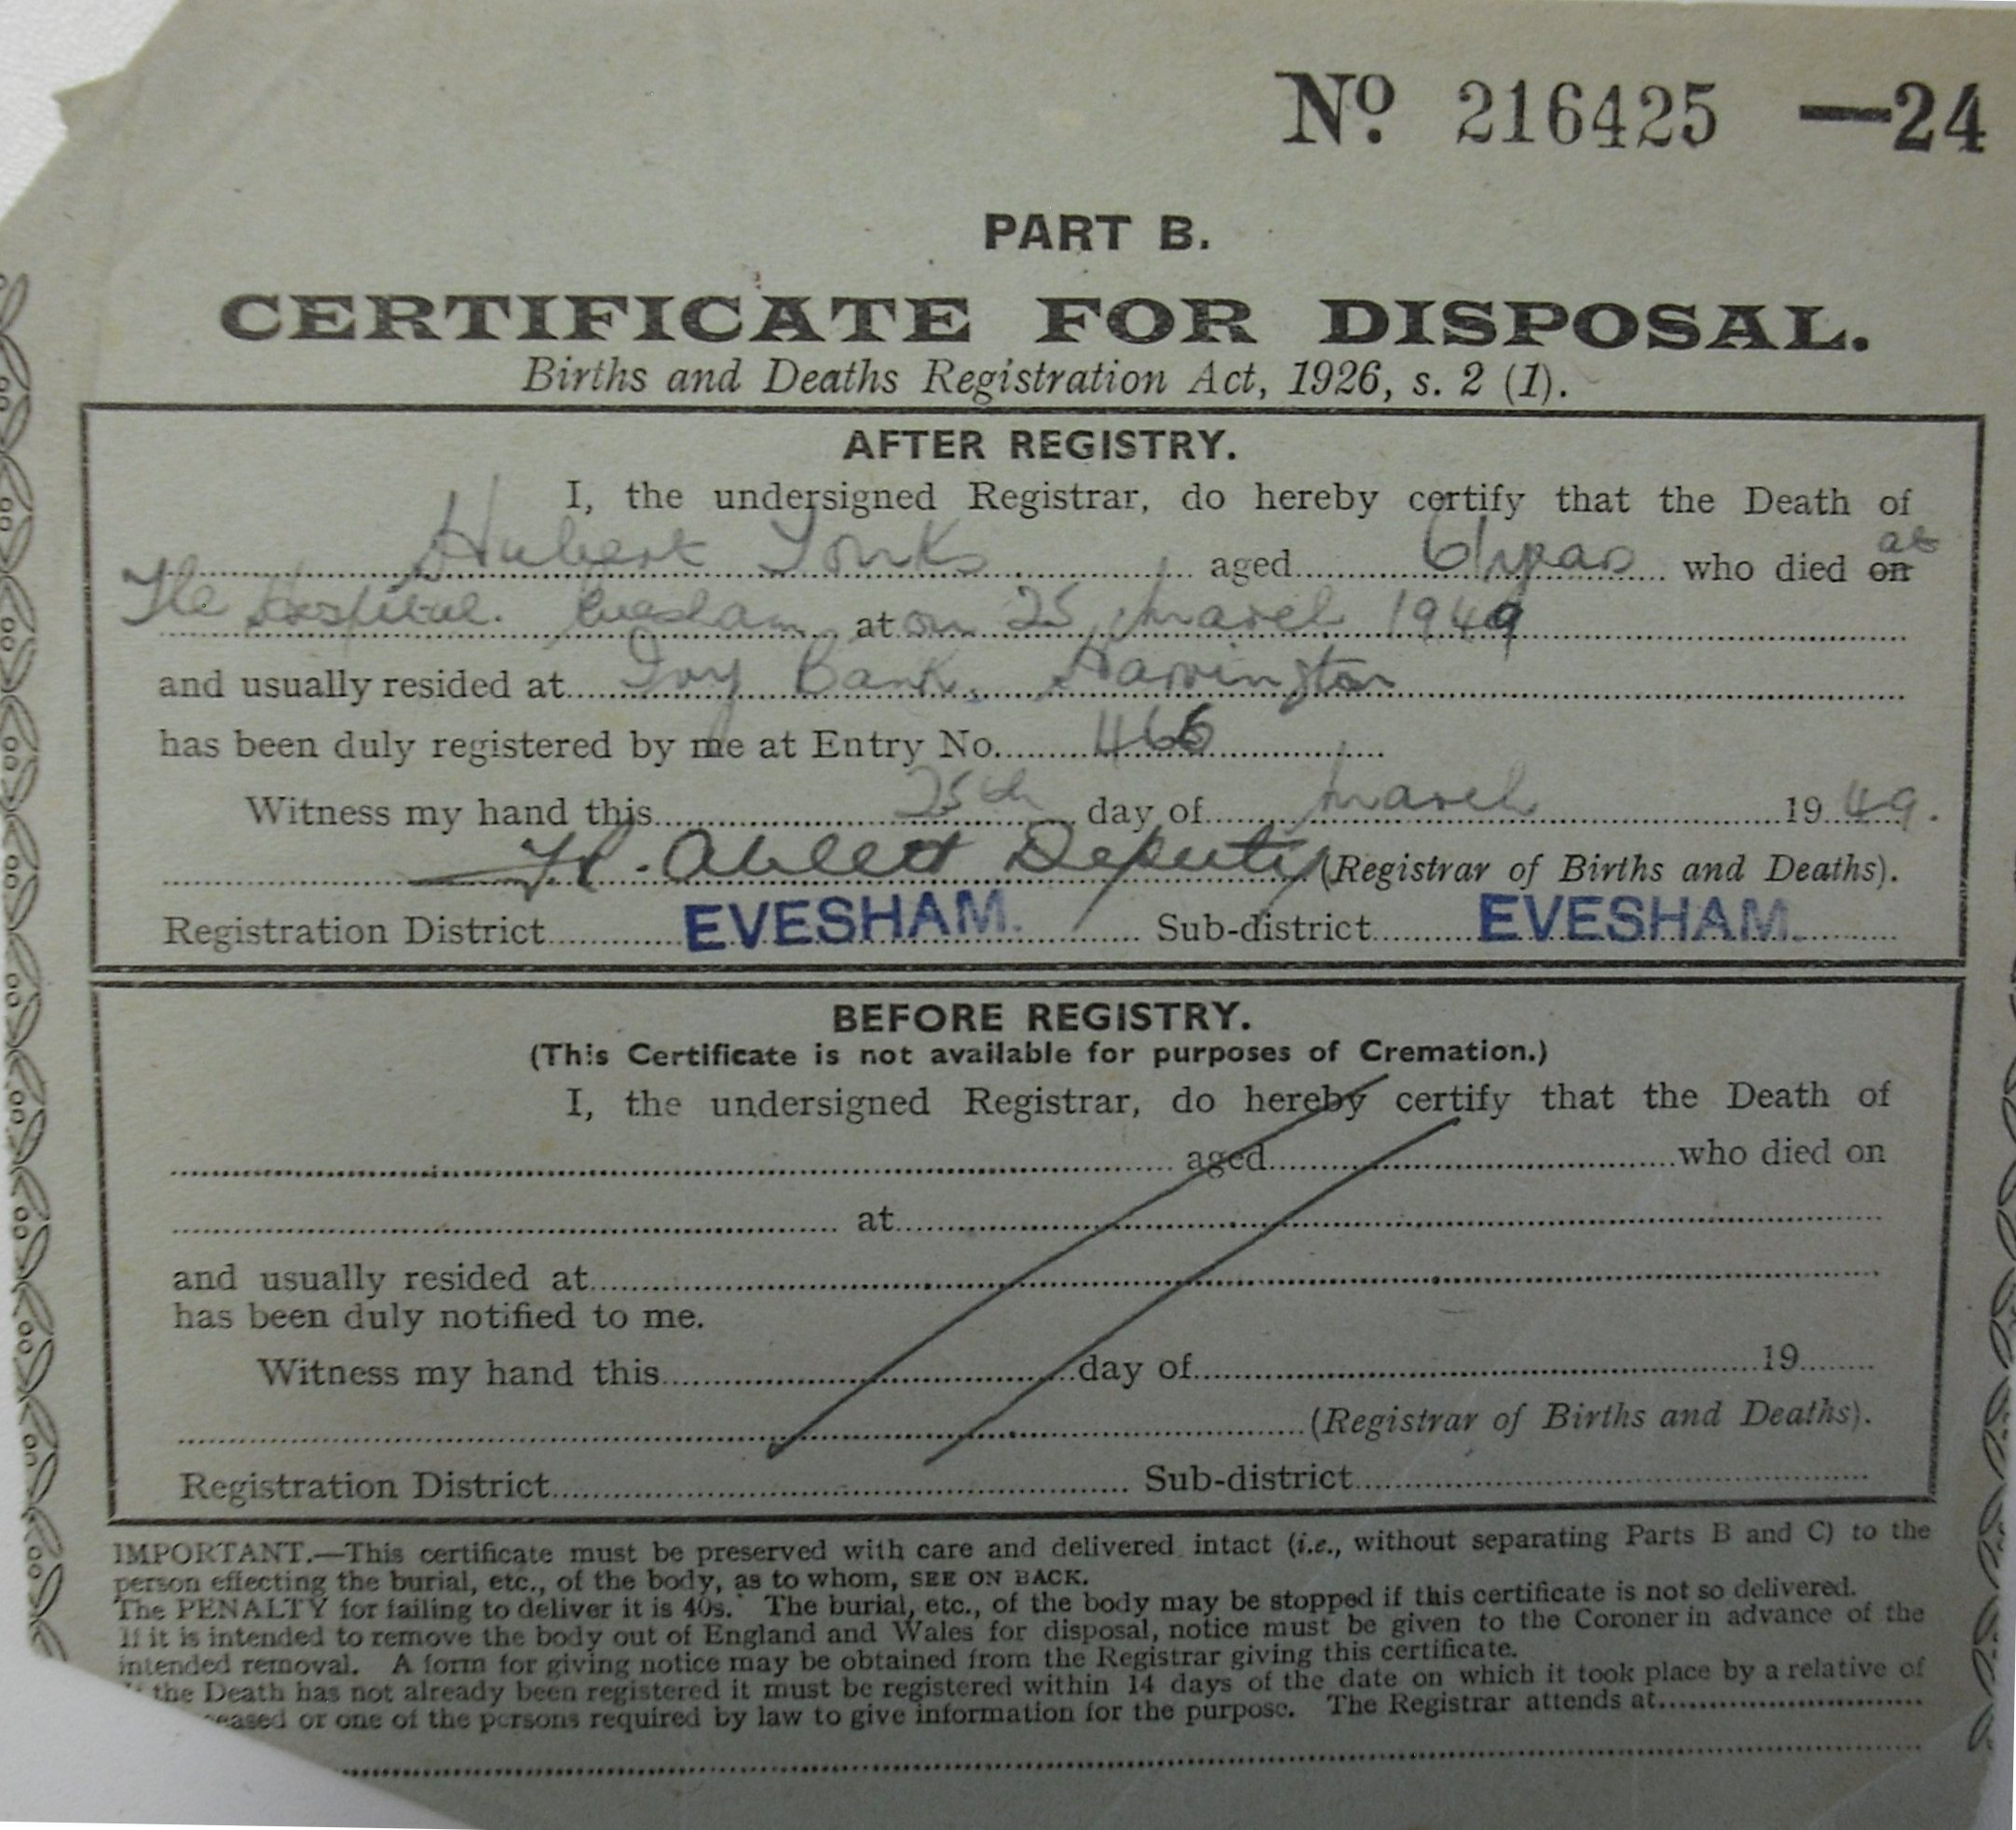 No. 216425 —24
PART B.
CERTIFICATE FOR DISPOSAL.
Births and Deaths Registration Act, 1926, s. 2 (1).
AFTER REGISTRY.
I, the undersigned Registrar, do hereby certify that the Death of
Hubert Tonks aged 61 years who died on at
The Hospital. Evesham at on 25 March 1949
and usually resided at Ivy Bank, Harvington
has been duly registered by me at Entry No. 466
Witness my hand this 25th day of March 1949.
Deputy (Registrar of Births and Deaths).
Registration District EVESHAM. Sub-district EVESHAM.
BEFORE REGISTRY.
(This Certificate is not available for purposes of Cremation.)
I, the undersigned Registrar, do hereby certify that the Death of
aged who died on
at
and usually resided at
has been duly notified to me.
Witness my hand this day of 19
(Registrar of Births and Deaths).
Registration District Sub-district
IMPORTANT.—This certificate must be preserved with care and delivered intact (i.e., without separating Parts B and C) to the
person effecting the burial, etc., of the body, as to whom, SEE ON BACK.
The PENALTY for failing to deliver it is 40s. The burial, etc., of the body may be stopped if this certificate is not so delivered.
If it is intended to remove the body out of England and Wales for disposal, notice must be given to the Coroner in advance of the
intended removal. A form for giving notice may be obtained from the Registrar giving this certificate.
the Death has not already been registered it must be registered within 14 days of the date on which it took place by a relative of
eased or one of the persons required by law to give information for the purpose. The Registrar attends at